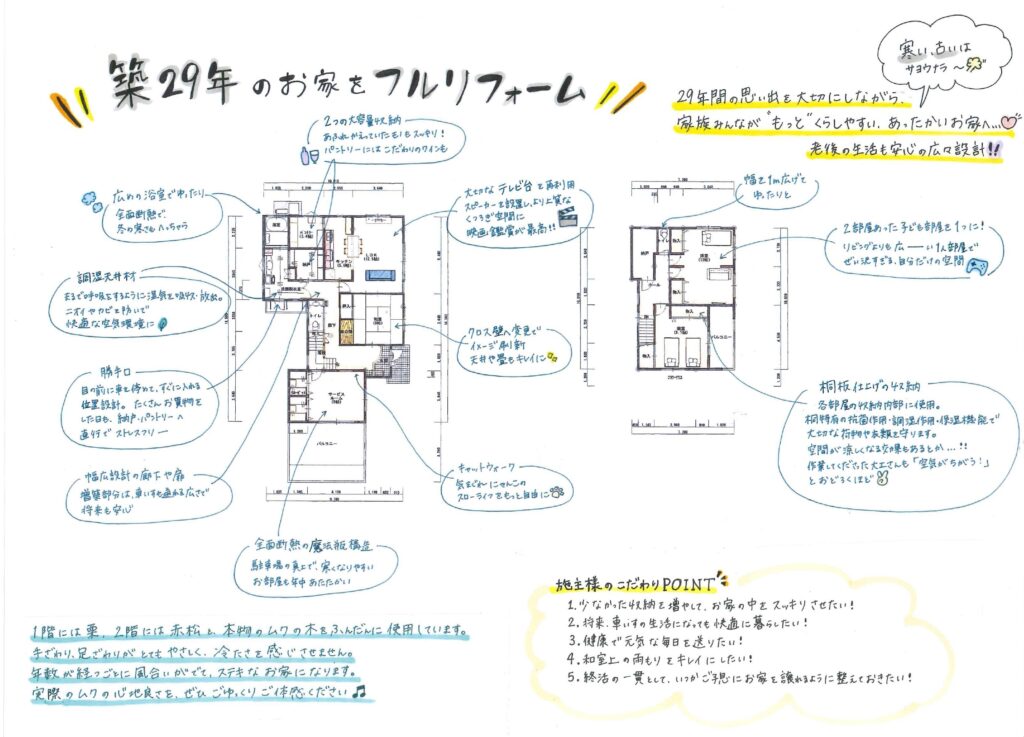 築29年のお家をフルリフォーム
寒い、古いは
サヨウナラ〜
29年間の思い出を大切にしながら、
家族みんなが"もっと"くらしやすい、あったかいお家へ…
老後の生活も安心の広々設計!!
2つの大容量収納
あふれかえっていたモノもスッキリ!
パントリーにはこだわりのワインも
広めの浴室でゆったり
全面断熱で
冬の寒さもへっちゃら
大切なテレビ台を再利用
スピーカーを設置し、より上質な
くつろぎ空間に
映画鑑賞が最高!!
幅を1m広げて
ゆったりと
2部屋あった子ども部屋を1つに!
リビングよりも広ーい1人部屋で
ぜい沢すぎる、自分だけの空間
調湿天井材
まるで呼吸をするように湿気を吸収・放出。
ニオイやカビを防いで
快適な空気環境に
クロス壁へ変更で
イメージ刷新
天井や畳もキレイに
勝手口
目の前に車を停めて、すぐに入れる
位置設計。たくさんお買物を
した日も、納戸・パントリーへ
直行でストレスフリー
桐板仕上げの収納
各部屋の収納内部に使用。
桐特有の抗菌作用・調湿作用・保温機能で
大切な荷物や衣類を守ります。
空間が涼しくなる効果もあるとか…!!
作業してくださった大工さんも「空気がちがう!」
とおどろくほど
幅広設計の廊下や扉
増築部分は、車いすも通れる広さで
将来も安心
キャットウォーク
気まぐれにゃんこの
スローライフをもっと自由に
全面断熱の魔法瓶構造
駐車場の真上で、寒くなりやすい
お部屋も年中あたたかい
LDK
キッチン
納戸
トイレ
廊下
押入
サービス
ルーム
バルコニー
トイレ
納戸
ホール
物入
物入
バルコニー
1階には栗、2階には赤松と、本物のムクの木をふんだんに使用しています。
手ざわり、足ざわりがとてもやさしく、冷たさを感じさせません。
年数が経つごとに風合いがでて、ステキなお家になります。
実際のムクの心地良さを、ぜひごゆっくりご体感ください♫
施主様のこだわりPOINT
1. 少なかった収納を増やして、お家の中をスッキリさせたい!
2. 将来、車いすの生活になっても快適に暮らしたい!
3. 健康で元気な毎日を送りたい!
4. 和室上の雨もりをキレイにしたい!
5. 終活の一貫として、いつかご子息にお家を譲れるように整えておきたい!